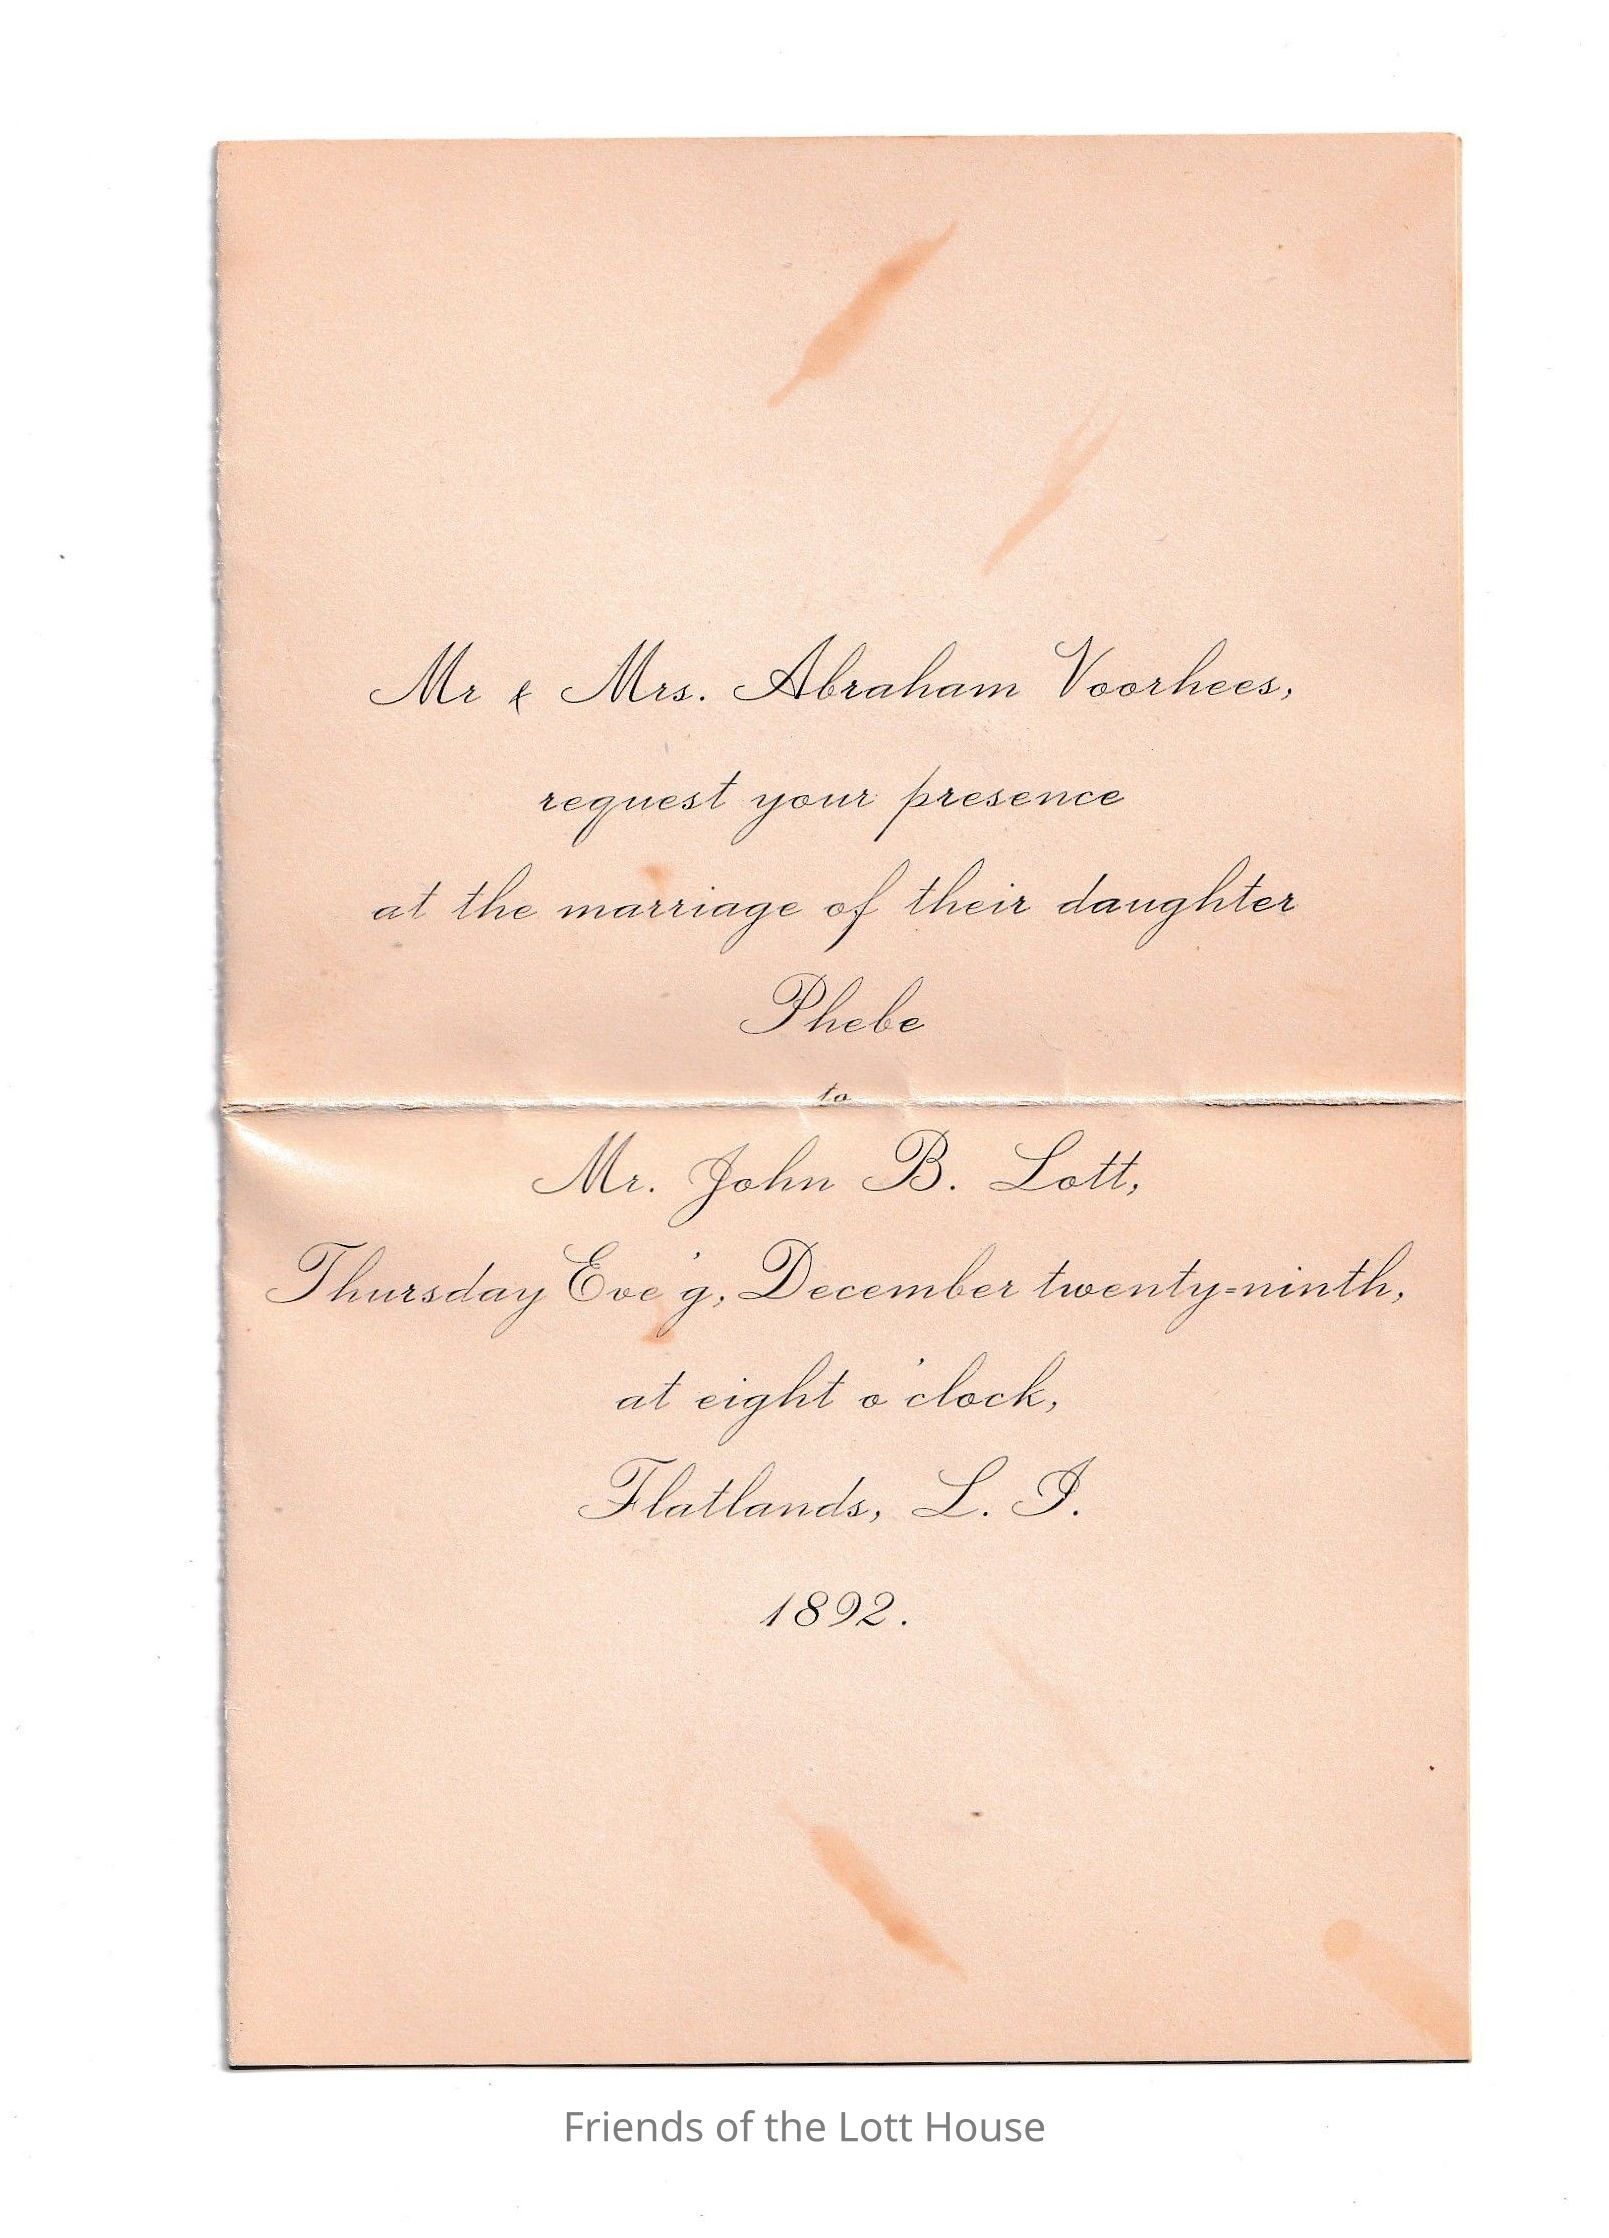 Mr & Mrs. Abraham Voorhees,
request your presence
at the marriage of their daughter
Phebe
to
Mr. John B. Lott,
Thursday Eve'g, December twenty=ninth,
at eight o'clock,
Flatlands, L. I.
1892.
Friends of the Lott House